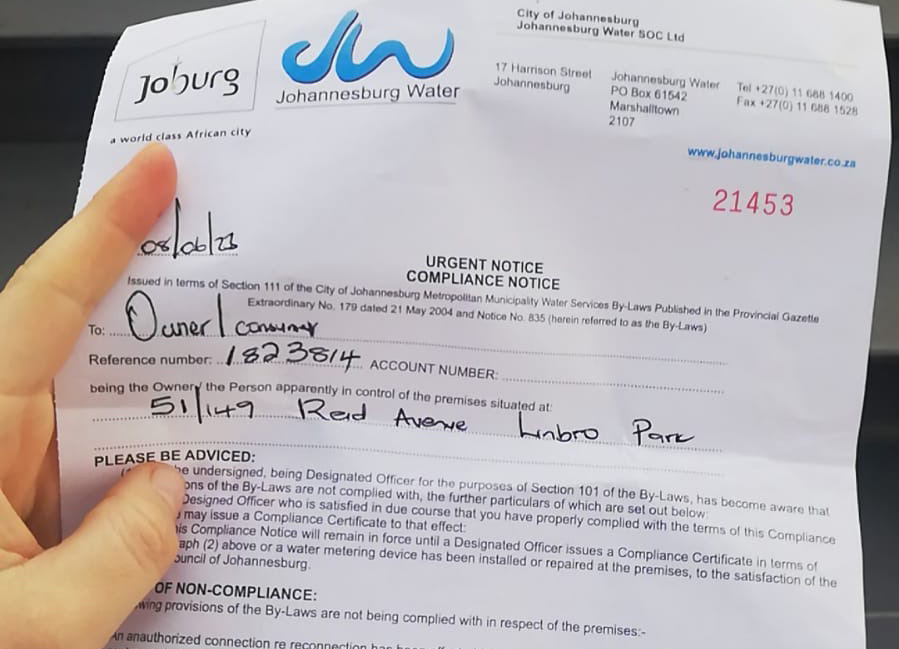 Joburg
a world class African city
Johannesburg Water
City of Johannesburg
Johannesburg Water SOC Ltd
17 Harrison Street
Johannesburg
Johannesburg Water
PO Box 61542
Marshalltown
2107
Tel +27(0) 11 688 1400
Fax +27(0) 11 688 1528
www.johannesburgwater.co.za
21453
08/06/23
URGENT NOTICE
COMPLIANCE NOTICE
Issued in terms of Section 111 of the City of Johannesburg Metropolitan Municipality Water Services By-Laws Published in the Provincial Gazette
Extraordinary No. 179 dated 21 May 2004 and Notice No. 835 (herein referred to as the By-Laws)
To: Owner / consumer
Reference number: 1823814 ACCOUNT NUMBER:
being the Owner/ the Person apparently in control of the premises situated at:
51/149 Reid Avenue Linbro Park
PLEASE BE ADVICED:
undersigned, being Designated Officer for the purposes of Section 101 of the By-Laws, has become aware that
of the By-Laws are not complied with, the further particulars of which are set out below:
Designed Officer who is satisfied in due course that you have properly complied with the terms of this Compliance
may issue a Compliance Certificate to that effect:
Compliance Notice will remain in force until a Designated Officer issues a Compliance Certificate in terms of
(2) above or a water metering device has been installed or repaired at the premises, to the satisfaction of the
of Johannesburg.
OF NON-COMPLIANCE:
provisions of the By-Laws are not being complied with in respect of the premises:-
An anauthorized connection re reconnection has been